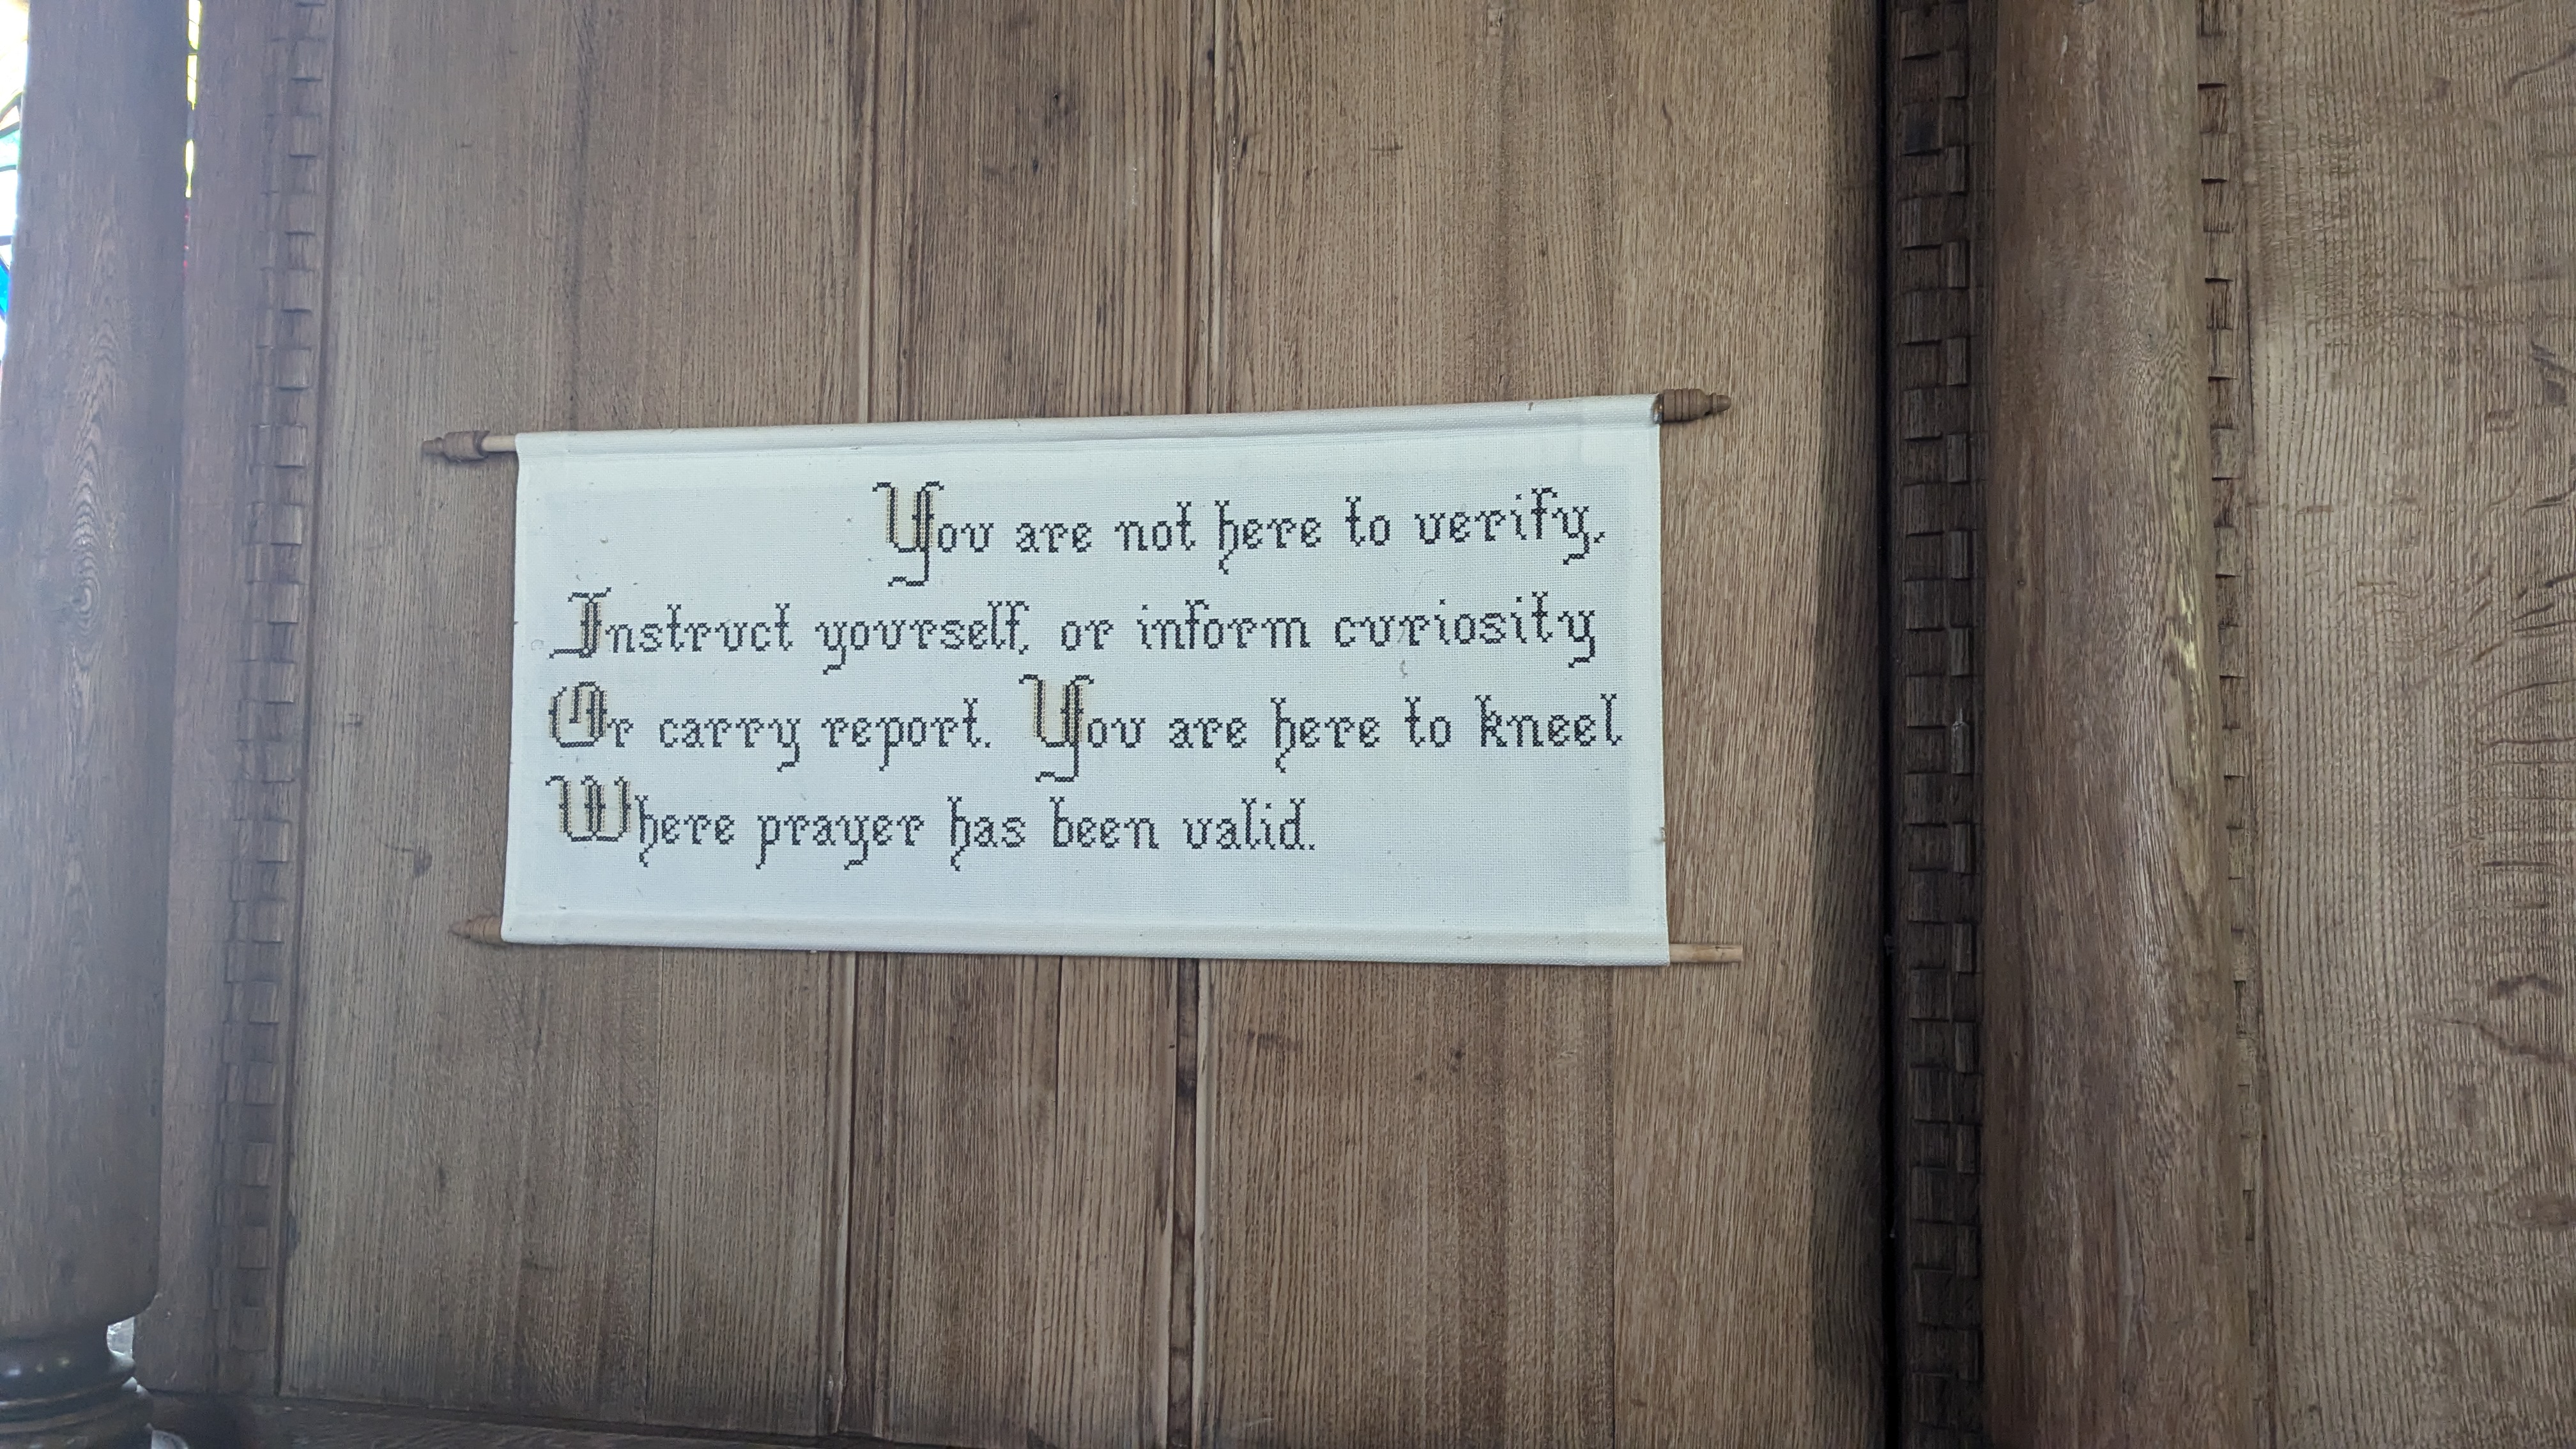 You are not here to verify,
Instruct yourself, or inform curiosity
Or carry report. You are here to kneel
Where prayer has been valid.